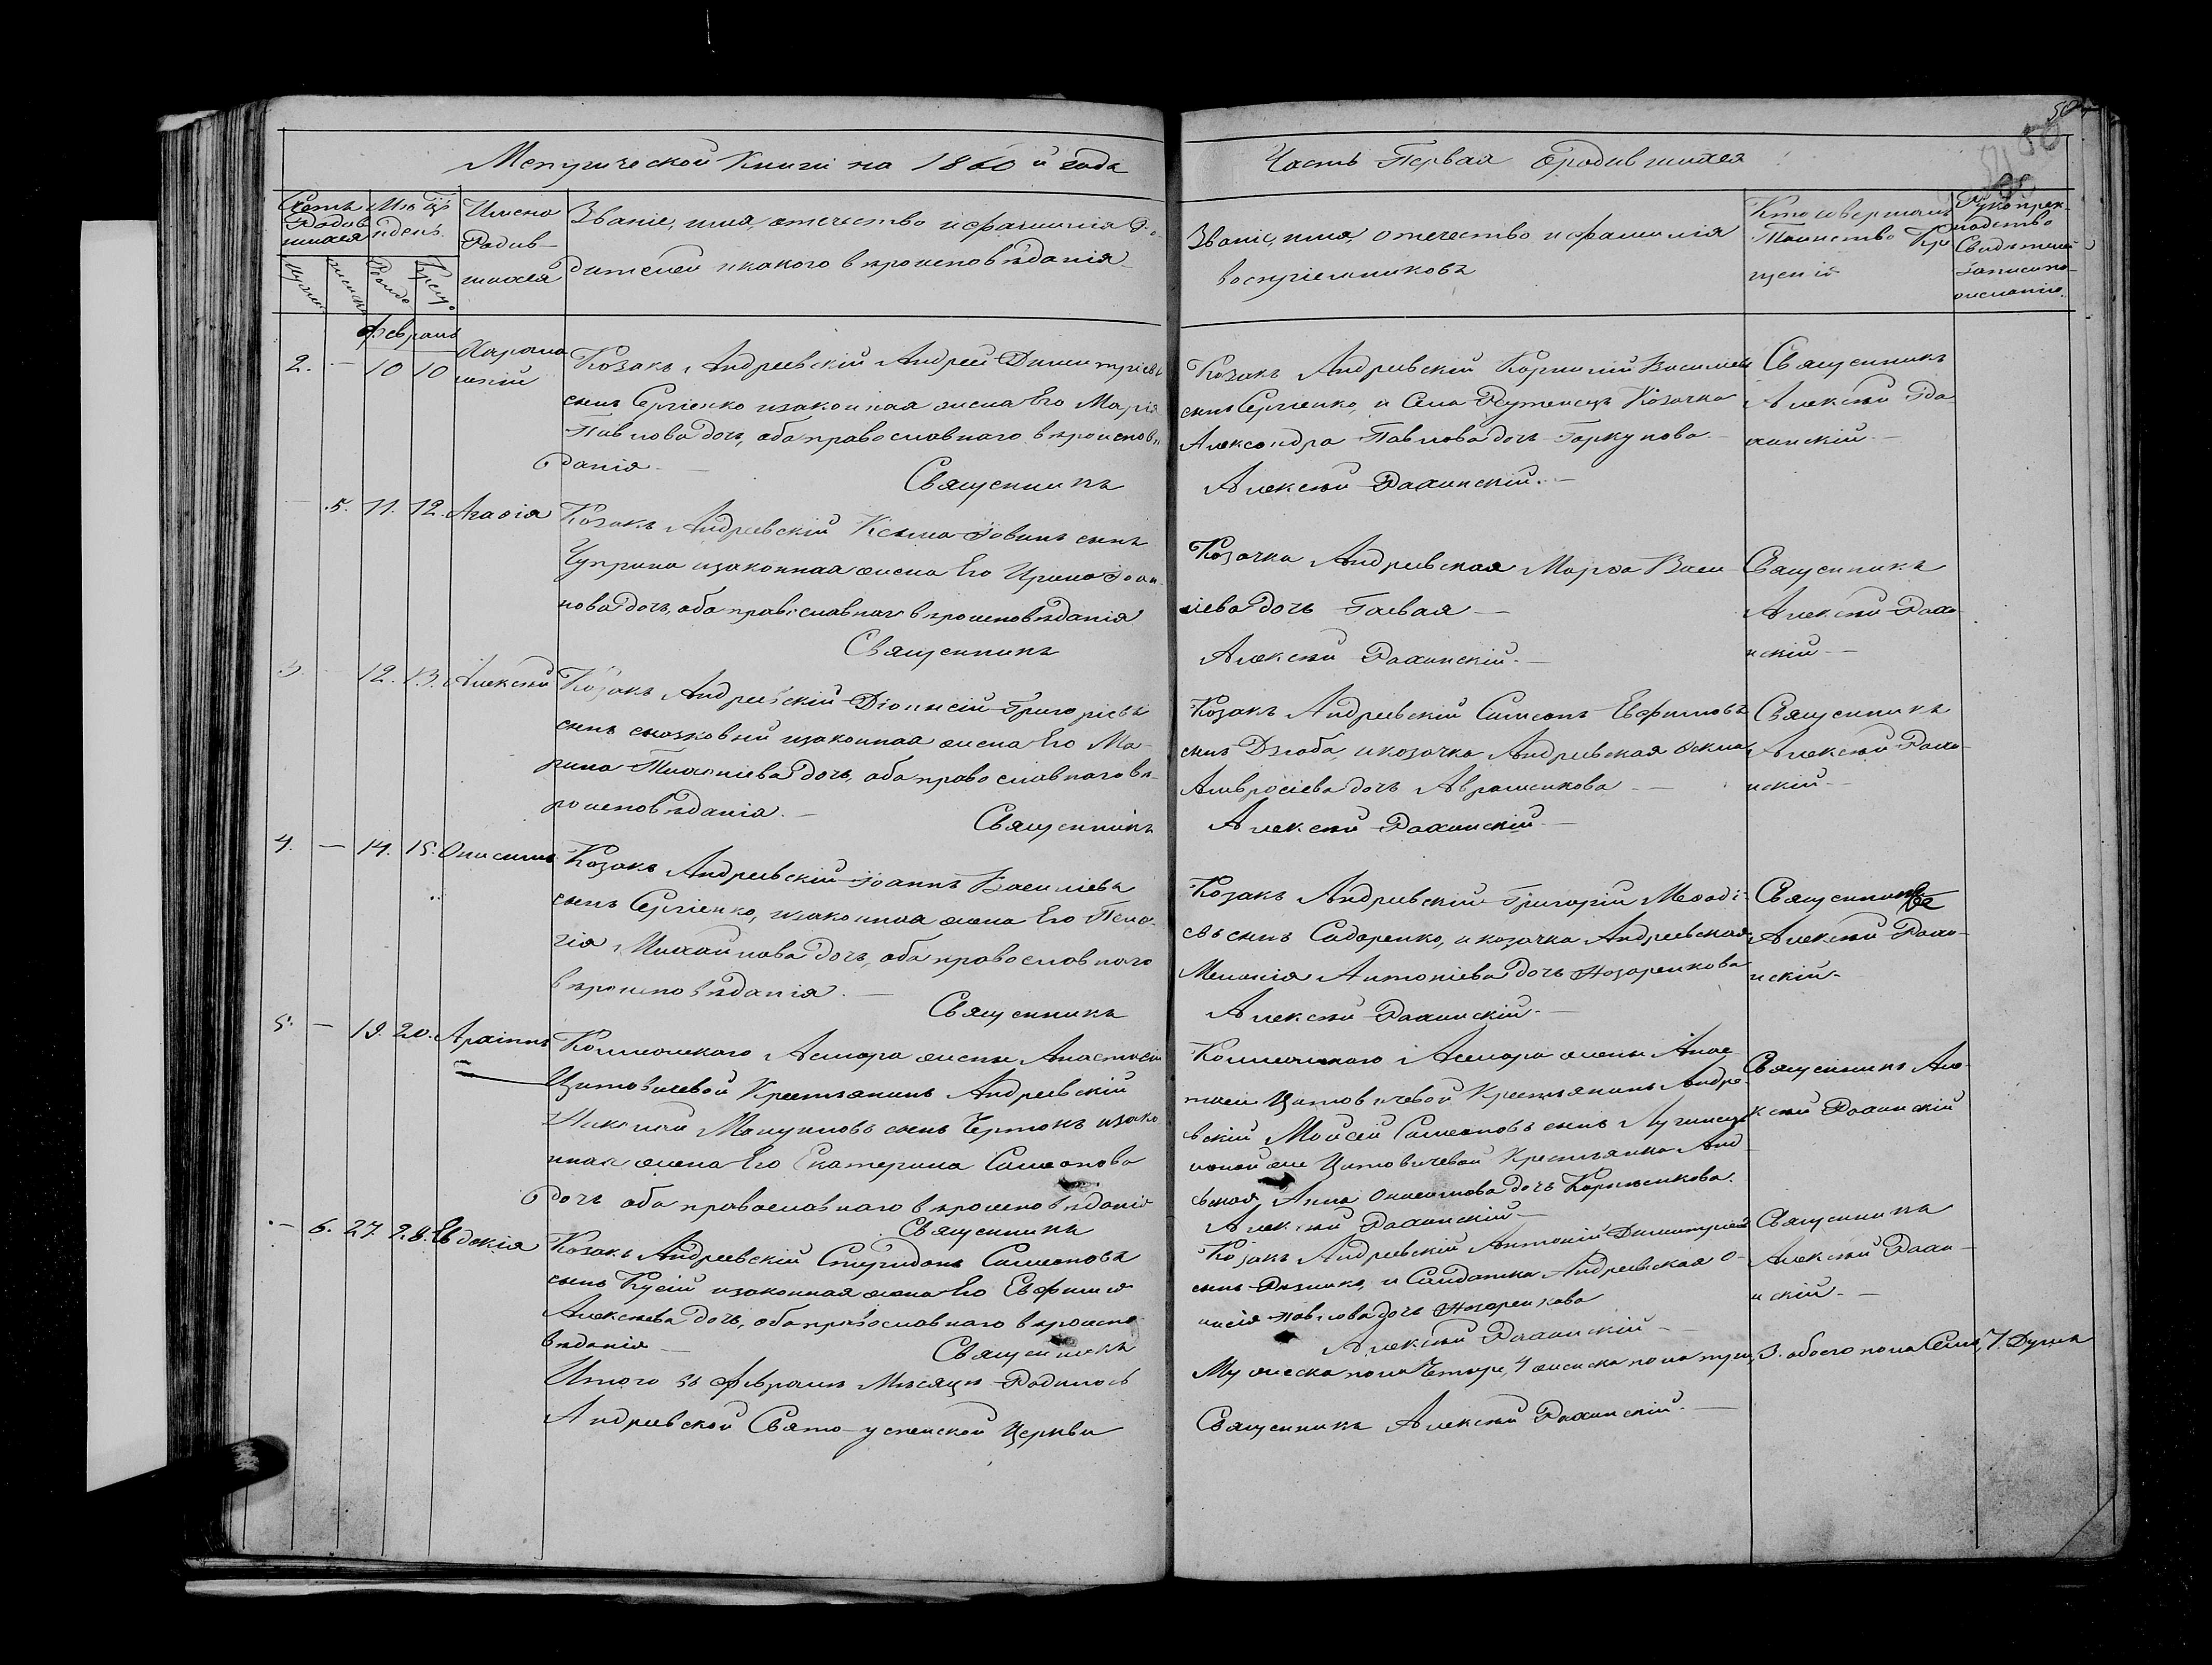 Метрической Книги на 1860й годъ
Часть Первая о родившихся
Счетъ Родившихся
Мѣсяцъ и день
Имена Родившихся
Званіе, имя, отечество и фамилія Родителей и какого вѣроисповѣданія
Званіе, имя, отечество и фамилія воспріемниковъ
Кто совершалъ Таинство Крещенія
Рукоприкладство Свидѣтелей записи по желанію
февраль
2. – 10 10 Харлампій
Козакъ Андреевскій Андрей Димитріевъ
сынъ Сергіенко и законная жена Его Марія
Павлова дочь, оба православнаго вѣроисповѣ
данія. Священникъ
Козакъ Андреевскій Корнилій Васильевъ
сынъ Сергіенко, и Села Козачка
Александра Павлова дочь Горкунова.
Алексѣй Рахинскій.
Священникъ
Алексѣй Ра-
хинскій.
– 5. 11. 12. Агафія
Козакъ Андреевскій Косьма Іовинъ сынъ
Чуприна и законная жена Его Ирина Іоан-
нова дочь, оба православнаго вѣроисповѣданія
Священникъ
Козачка Андреевская Марѳа Васи-
ліева дочь Гаевая
Алексѣй Рахинскій.
Священникъ
Алексѣй Рахи-
нскій
3. – 12. 13. Алексѣй
Козакъ Андреевскій Діонисій Григоріевъ
сынъ и законная жена Его Ма-
рина дочь, оба православнаго вѣ-
роисповѣданія. Священникъ
Козакъ Андреевскій Симеонъ Евфимовъ
сынъ Дзюба, и козачка Андреевская
Амвросіева дочь Авраменкова
Алексѣй Рахинскій
Священникъ
Алексѣй Рахи-
нскій
4. – 14. 15. Онисимъ
Козакъ Андреевскій Іоаннъ Василіевъ
сынъ Сергіенко, и законная жена Его Пела-
гія Михайлова дочь, оба православнаго
вѣроисповѣданія. Священникъ
Козакъ Андреевскій Григорій Меѳоді-
евъ сынъ Сидоренко, и козачка Андреевская
Меланія Антоніева дочь Назаренкова
Алексѣй Рахинскій.
Священникъ
Алексѣй Рахи-
нскій.
5. – 19. 20. Архипъ
Коллежскаго Асесора жены Анастасіи
Цитовичевой Крестьянинъ Андреевскій
сынъ и зако
нная жена Его Екатерина Симеонова
дочь оба православнаго вѣроисповѣданія
Священникъ
Коллежскаго Асесора жены Анас-
тасіи Цитовичевой Крестьянинъ Андре-
вскій Моисей Симеоновъ сынъ
той же Цитовичевой Крестьянка Анд
Анна Онисимова дочь
Алексѣй Рахинскій
Священникъ Але-
ксѣй Рахинскій
– 6. 27. 28. Евдокія
Козакъ Андреевскій Спиридонъ Симеоновъ
сынъ и законная жена Его Евфимія
Алексѣева дочь, оба православнаго вѣроиспо
вѣданія Священникъ
Козакъ Андреевскій Антоній Димитріевъ
сынъ и Солдатка Андреевская
Павлова дочь Назаренкова
Алексѣй Рахинскій
Священникъ
Алексѣй Рахи-
нскій.
Итого въ февралѣ Мѣсяцѣ Родилось
Андреевской Свято-успенской Церкви
Мужеска пола Четыре, 4 женска пола три, 3. обоего пола Семь, 7. Душъ
Священникъ Алексѣй Рахинскій.